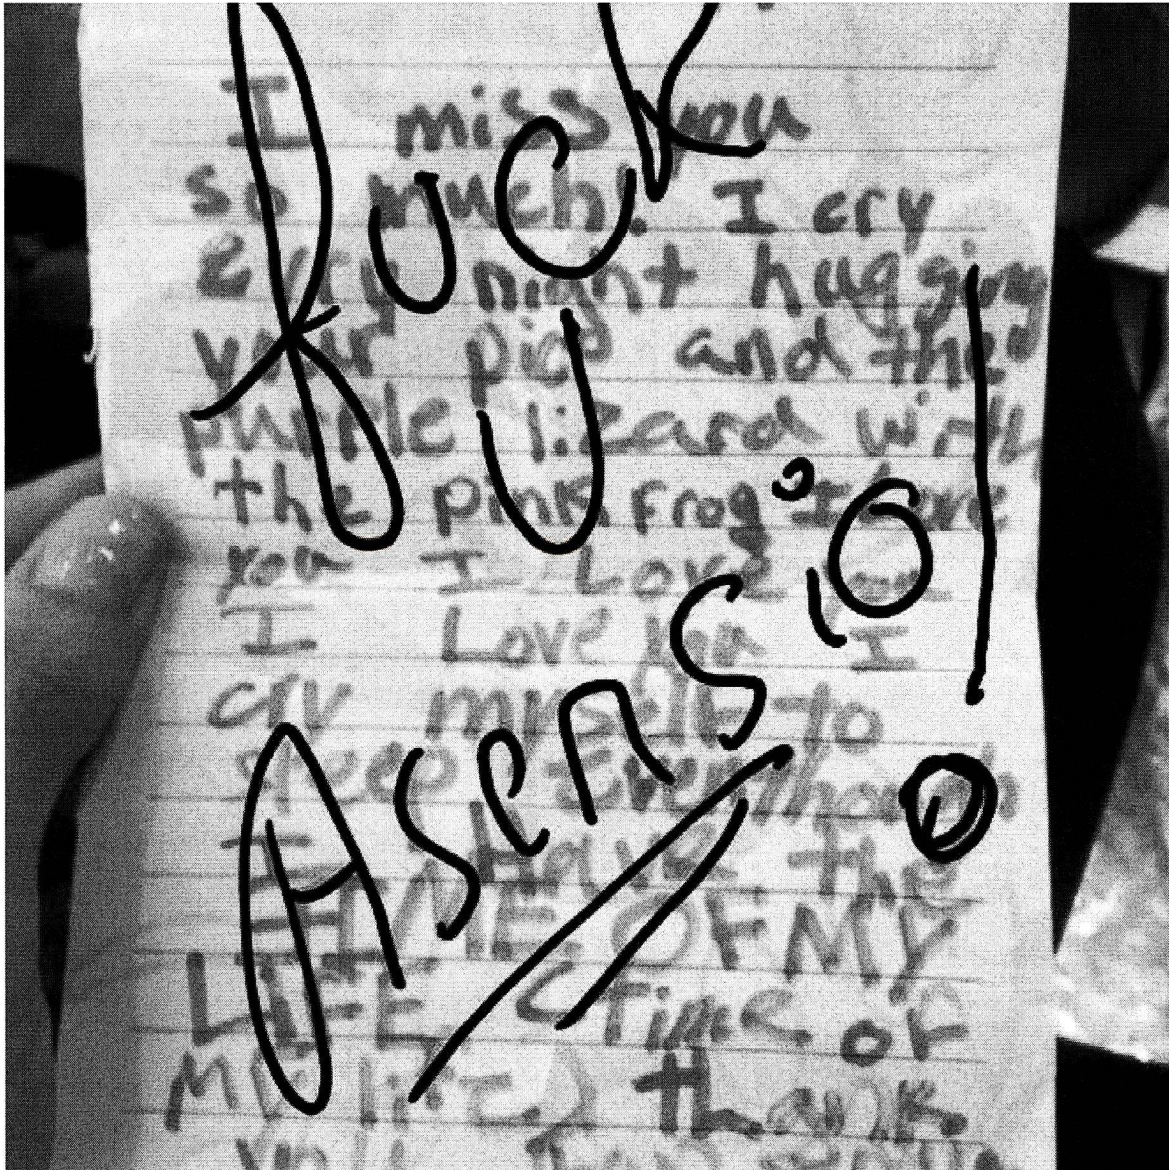 fuck
U
Asensio!
I miss you
so much! I cry
every night hugging
your pig and the
purple lizard with
the pink frog I love
you I Love you
I Love you I
cry myself to
sleep Even though
I Have the
TIME OF MY
LIFE (Time OF
My life) thank
you